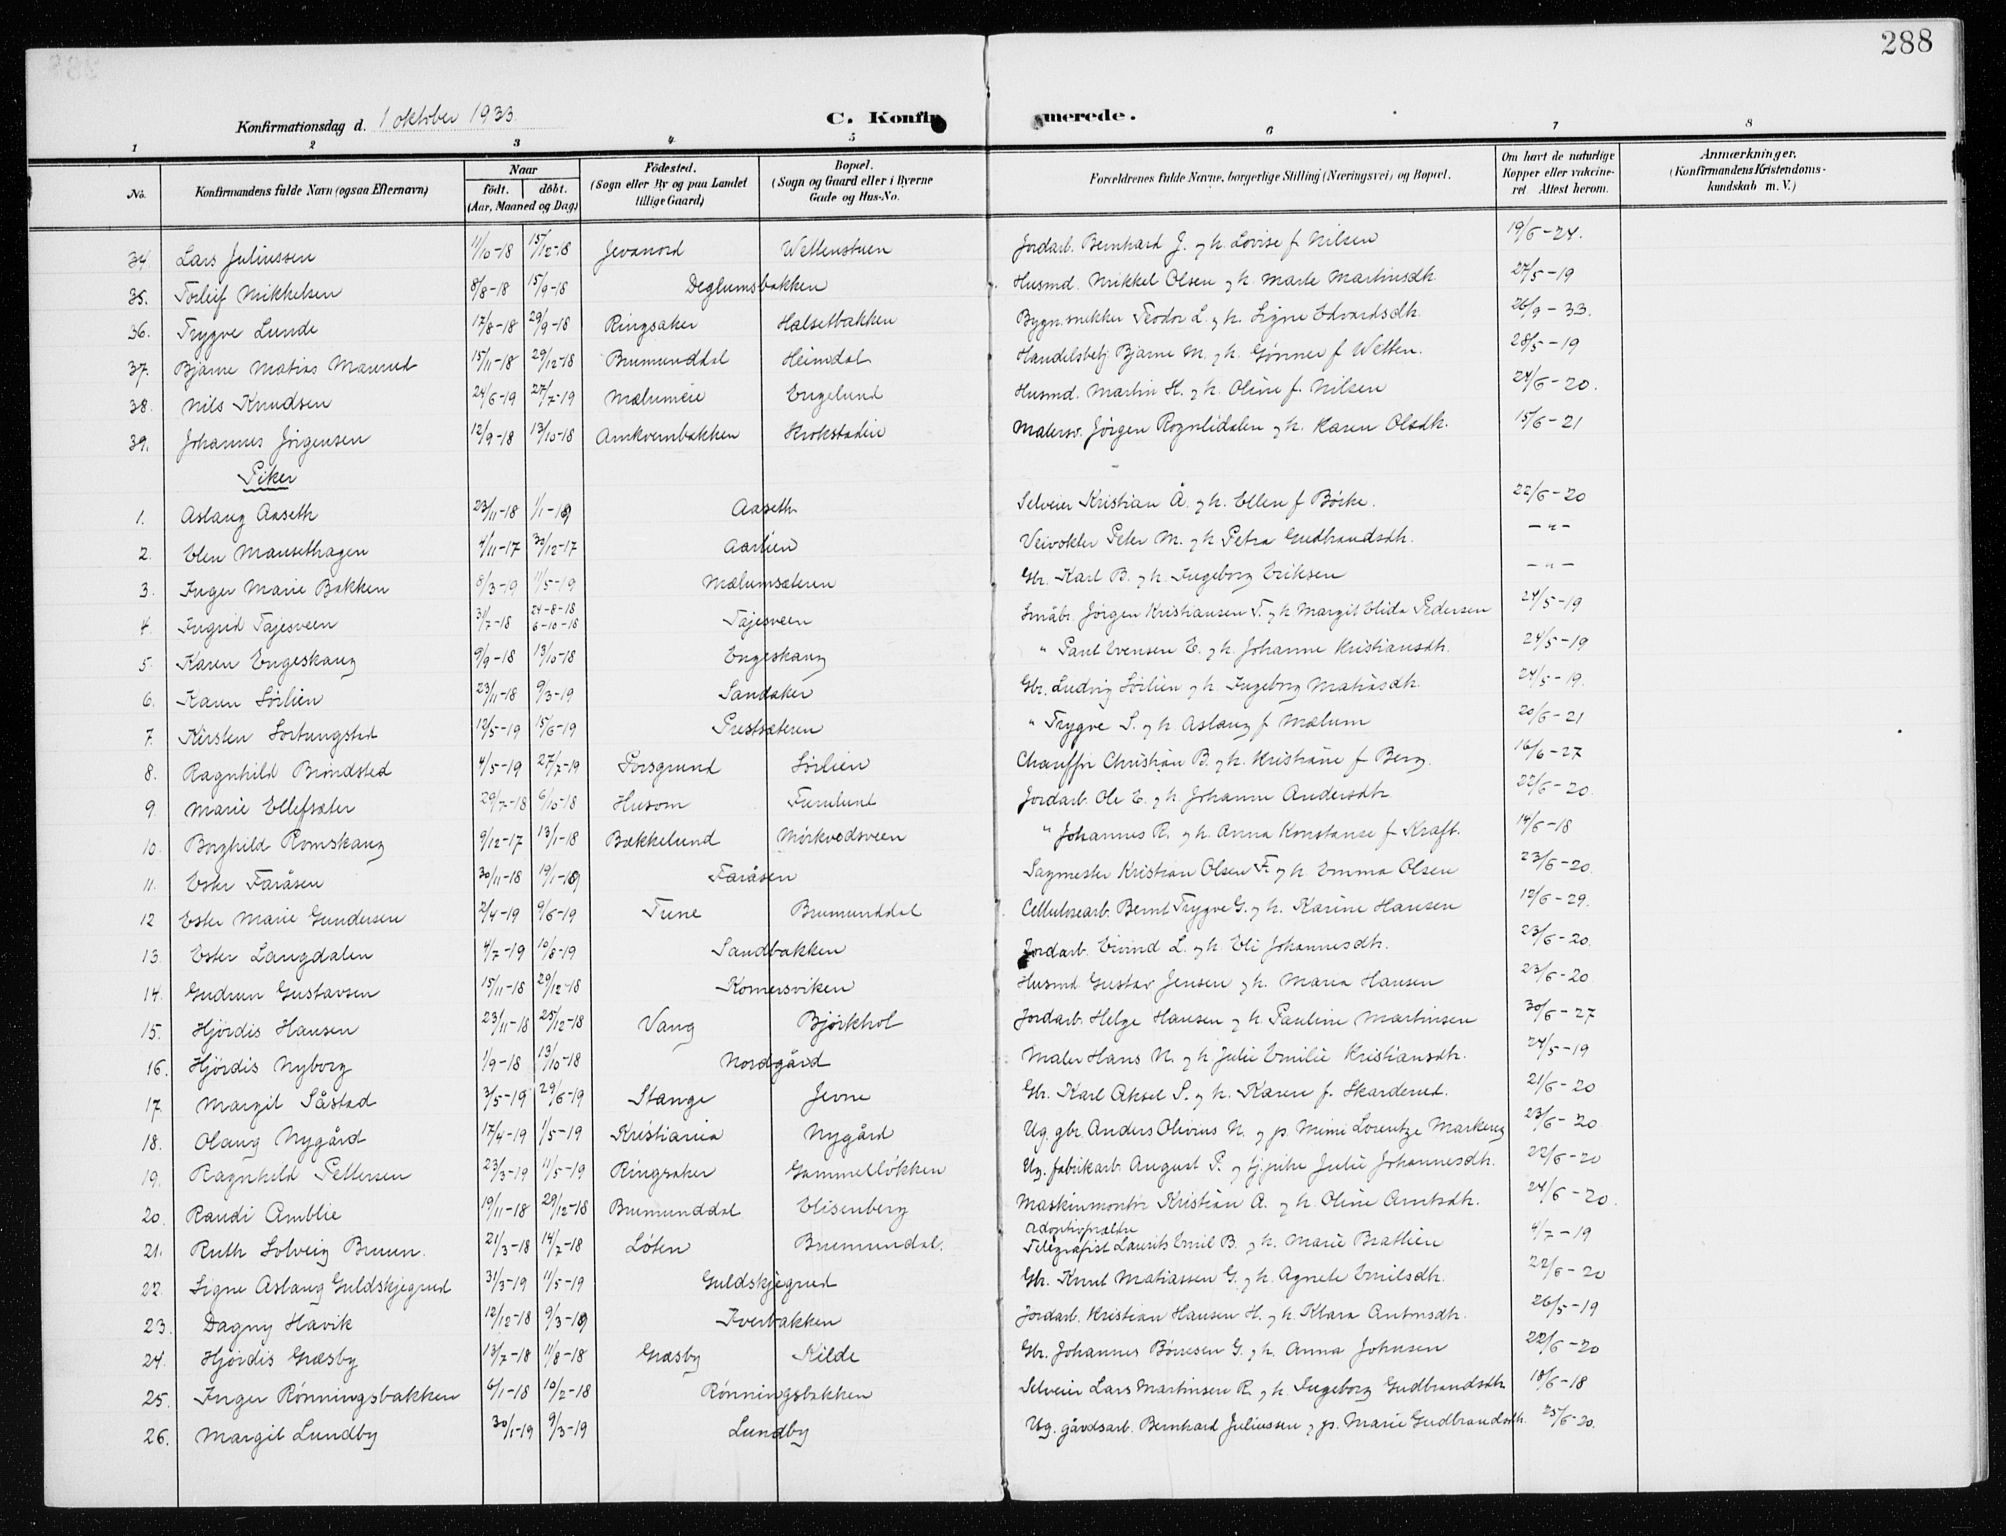 288
Konfirmationsdag d. 1 oktober 1933.
C. Konfirmerede.
1 2 3 4 5 6 7 8
No. Konfirmandens fulde Navn (ogsaa Efternavn) Naar født. døbt. (Aar, Maaned og Dag) Födested. (Sogn eller By og paa Landet tillige Gaard) Bopæl. (Sogn og Gaard eller i Byerne Gade og Hus-No. Forældrenes fulde Navne, borgerlige Stilling (Næringsvei) og Bopæl. Om havt de naturlige Kopper eller vakcineret Attest herom. Anmærkninger. (Konfirmandens Kristendomskundskab m. V.)
34. Lars Juliussen 11/10-18 15/12-18 Jevanord Wettenstuen Jordarb. Bernhard J. og h. Lovise f. Nilsen 19/6-24.
35. Torleif Mikkelsen 8/8-18 15/9-18 Deglumsbakken Husmd. Mikkel Olsen og h. Marte Martinsdtr. 27/5-19
36. Trygve Lunde 17/8-18 29/9-18 Ringsaker Halsetbakken Bygn.snekker Teodor L. og h. Signe Edvardsdtr. 26/9-33.
37. Bjarne Matias Maurud 15/11-18 29/12-18 Brumunddal Heimdal Handelsbetj. Bjarne M. og h. Gunner f. Wetten. 28/5-19
38. Nils Knudsen 24/6-19 27/7-19 Mælumeie Engelund Husmd. Martin H. og h. Oline f. Nilsen 24/6-20.
39. Johannes Jørgensen 12/9-18 13/10-18 Arnkvernbakken Krokstadeie Malersv. Jørgen Rognlidalen og h. Karen Olsdtr. 15/6-21
Piker
1. Aslaug Aaseth 23/11-18 1/1-19 Aaseth Selveier Kristian Å. og h. Ellen f. Böcke. 22/6-20
2. Elen Mausethagen 4/11-17 30/12-17 Aarlien Veivokter Peter M. og h. Petra Gudbrandsdtr. -"-
3. Inger Marie Bakken 8/3-19 11/5-19 Mælumsæteren Gbr. Karl B. og h. Ingeborg Eriksen -"-
4. Ingrid Tajesveen 31/7-18 24-8-18 6-10-18 Tajesveen Småbr. Jørgen Kristiansen T. og h. Margit Elida Pedersen 24/5-19
5. Karen Engeskaug 9/9-18 13/10-18 Engeskaug " Paul Evensen E. og h. Johanne Kristiansdtr. 24/5-19
6. Karen Sörlien 23/11-18 9/3-19 Sandaker Gbr. Ludvig Sörlien og h. Ingeborg Matiasdtr. 24/5-19.
7. Kirsten Sortungstad 12/5-19 15/6-19 Prestsæteren " Trygve S. og h. Aslaug f. Mælum 20/6-21
8. Ragnhild Bröndsted 4/5-19 27/7-19 Porsgrund Sörlien Chauffør Christian B. og h. Kristiane f. Berg. 16/6-27
9. Marie Ellefsæter 29/7-18 6/10-18 Husom Furulund Jordarb. Ole E. og h. Johanne Andersdtr. 22/6-20.
10. Borghild Romskaug 9/12-17 13/1-18 Bækkelund Mörkvedsveen " Johannes R. og h. Anna Konstanse f. Kraft. 14/6-18
11. Ester Faråsen 30/11-18 19/1-19 Faråsen Sagmester Kristian Olsen F. og h. Emma Olsen 23/6-20.
12 Ester Marie Gundersen 2/4-19 9/6-19 Tune Brumunddal Cellulosearb. Bernt Trygve G. og h. Karine Hansen 12/6-29.
13. Ester Langdalen 4/7-19 10/8-19 Sandbakken Jordarb. Eivind L. og h. Eli Johannesdtr. 23/6-20.
14. Gudrun Gustavsen 15/11-18 29/12-18 Komersviken Husmd Gustav Jensen og h. Maria Hansen 23/6-20
15. Hjördis Hansen 23/11-18 25/12-18 Vang Bjørkhol Jordarb. Helge Hansen og h. Pauline Martinsen 30/6-27
16. Hjördis Nyborg 1/9-18 13/10-18 Nordgård Maler Hans N. og h. Julie Emilie Kristiansdtr. 24/5-19
17. Margit Såstad 3/5-19 29/6-19 Stange Jevne Gbr. Karl Aksel S. og h. Karen f. Skarderud. 21/6-20
18. Olaug Nygård 17/4-19 1/5-19 Kristiania Nygård Ug. gbr. Anders Olivius N. og p. Mimi Lorentze Markeng 23/6-20
19. Ragnhild Pettersen 23/3-19 11/5-19 Ringsaker Gammelløkken Ug. fabrikarb. August P. og tj.pike Julie Johannesdtr. 22/6-20
20. Randi Amblie 19/11-18 29/12-18 Brumunddal Elisenberg Maskinmontør Kristian A. og h. Oline Arntsdtr. 24/6-20.
21. Ruth Solveig Bruun. 21/3-18 14/7-18 Löten Brumundal. adoptivforældre Telegrafist Laurits Emil B. og h. Marie Bratlien 4/7-19
22. Signe Aslaug Guldskjegrud 31/3-19 11/5-19 Guldskjegrud Gbr. Knut Matiassen G. og h. Agnete Emilsdtr. 22/6-20
23. Dagny Havik 12/12-18 9/3-19 Iverbakken Jordarb. Kristian Hansen H. og h. Klara Antonsdtr. 26/5-19
24. Hjördis Græsby 13/7-18 11/8-18 Græsby Kilde Gbr. Johannes Börresen G. og h. Anna Johnsen 22/6-20
25. Inger Rönningsbakken 6/1-18 10/2-18 Rönningsbakken Selveier Lars Martinsen R. og h. Ingeborg Gudbrandsdtr. 18/6-18
26. Margit Lundby 30/1-19 9/3-19 Lundby Ug. gårdsarb. Bernhard Juliussen og p. Marie Gudbrandsdtr. 25/6-20.